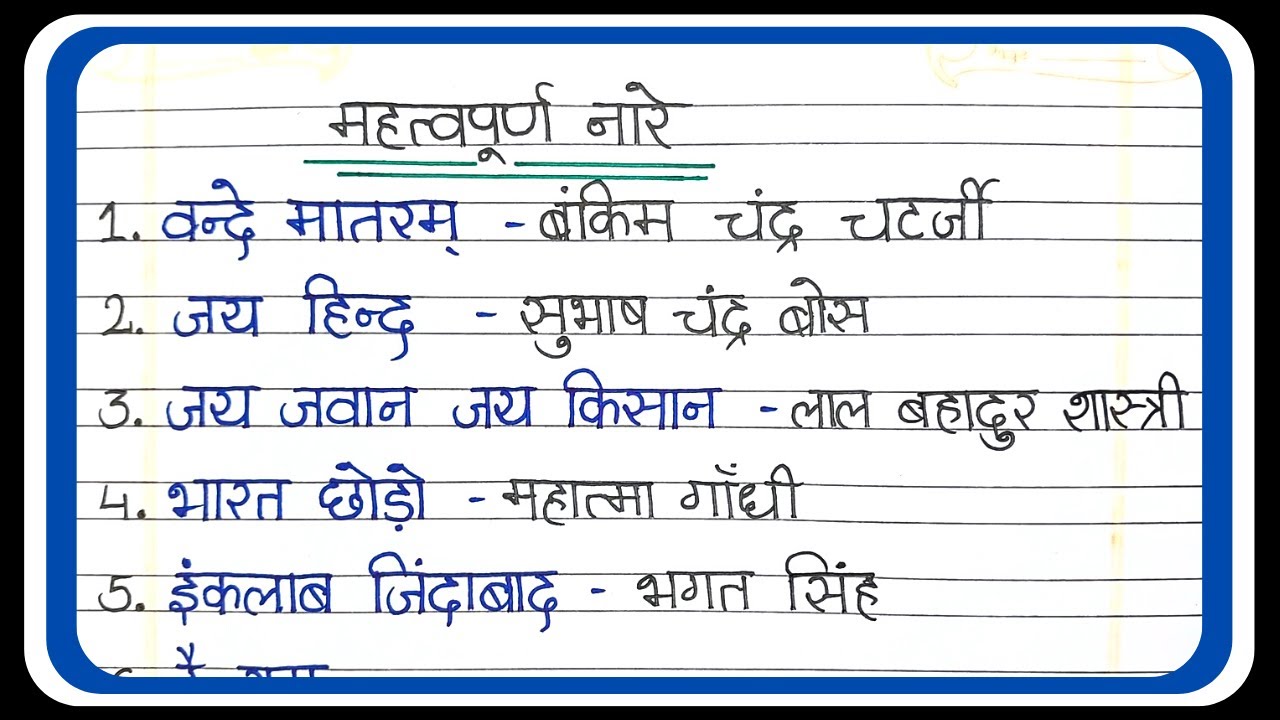 महत्वपूर्ण नारे
1. वन्दे मातरम् - बंकिम चंद्र चटर्जी
2. जय हिन्द - सुभाष चंद्र बोस
3. जय जवान जय किसान - लाल बहादुर शास्त्री
4. भारत छोड़ो - महात्मा गाँधी
5. इंकलाब जिंदाबाद - भगत सिंह